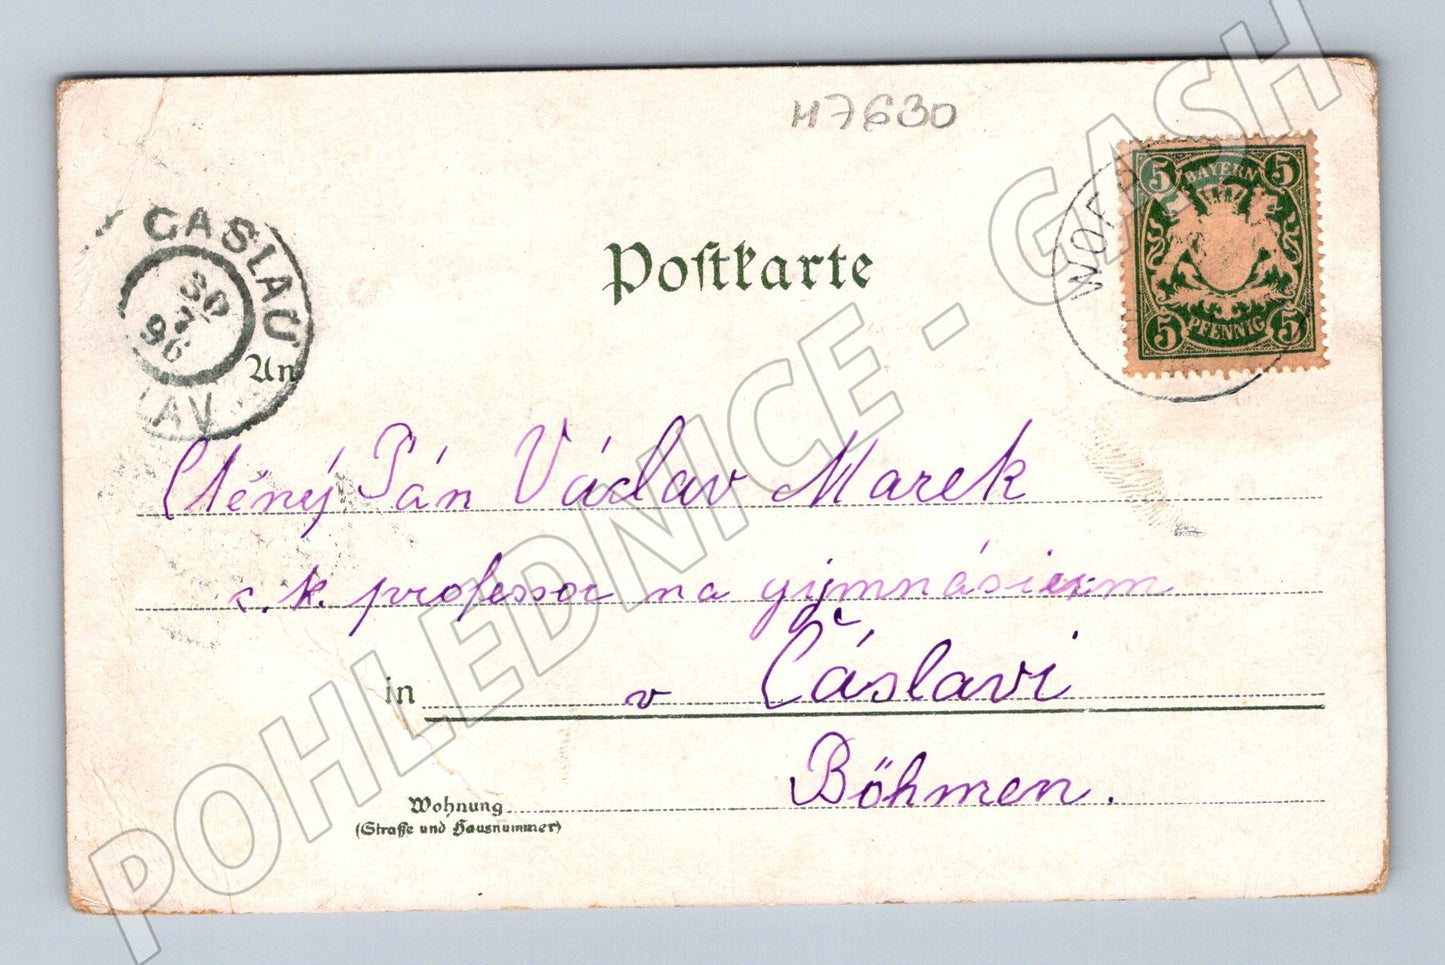 H7630
CASLAU
30
7
96
LAV
BAYERN
5 5
5 5
PFENNIG
Postkarte
An
Ctěný Pán Václav Marek
c. k. professor na gymnásium
in v Čáslavi
Böhmen.
Wohnung
(Straße und Hausnummer)
POHLEDNICE - GASH